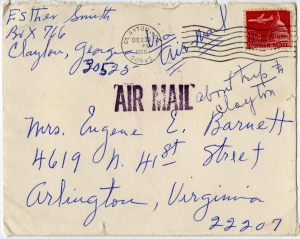 Esther Smith
Box 766
Clayton, Georgia
30525
Via
Air Mail
CLAYTON
AIR MAIL
about trip to
Clayton
Mrs. Eugene E. Barnett
4619 N. 41st Street
Arlington, Virginia
22207